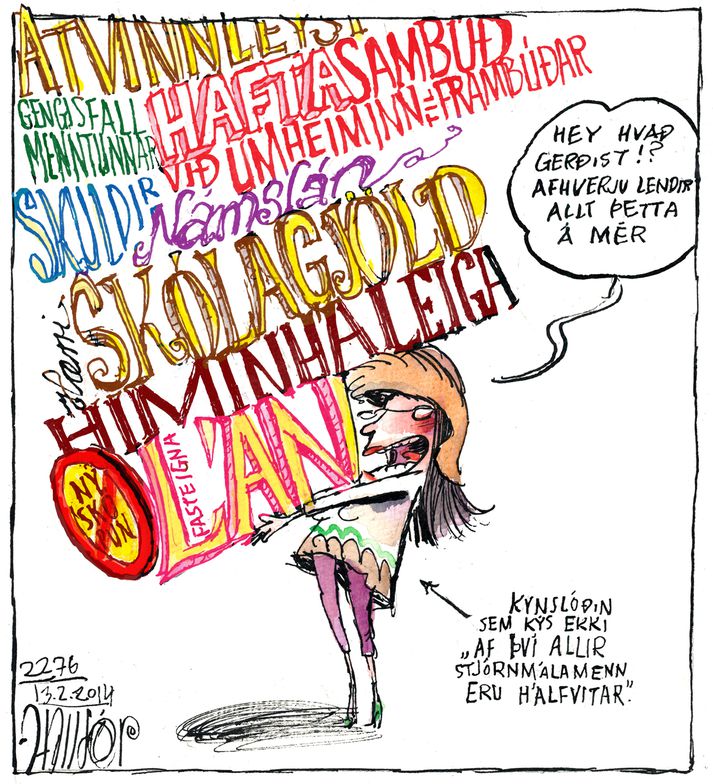 ATVINNLEYSI
GENGISFALL
MENNTUNNAR
HAFTASAMBÚÐ
VIÐ UMHEIMINN TIL FRAMBÚÐAR
SKULDIR
Námslán
Hærri
SKÓLAGJÖLD
HIMINHÁ LEIGA
FASTEIGNA
LÁN
NÝ
SK
ÖP
UN
HEY HVAÐ
GERÐIST!?
AFHVERJU LENDIR
ALLT ÞETTA
Á MÉR
KYNSLÓÐIN
SEM KÝS EKKI
„AF ÞVÍ ALLIR
STJÓRNMÁLAMENN
ERU HÁLFVITAR“.
2276
13.2.2014
HALLDÓR